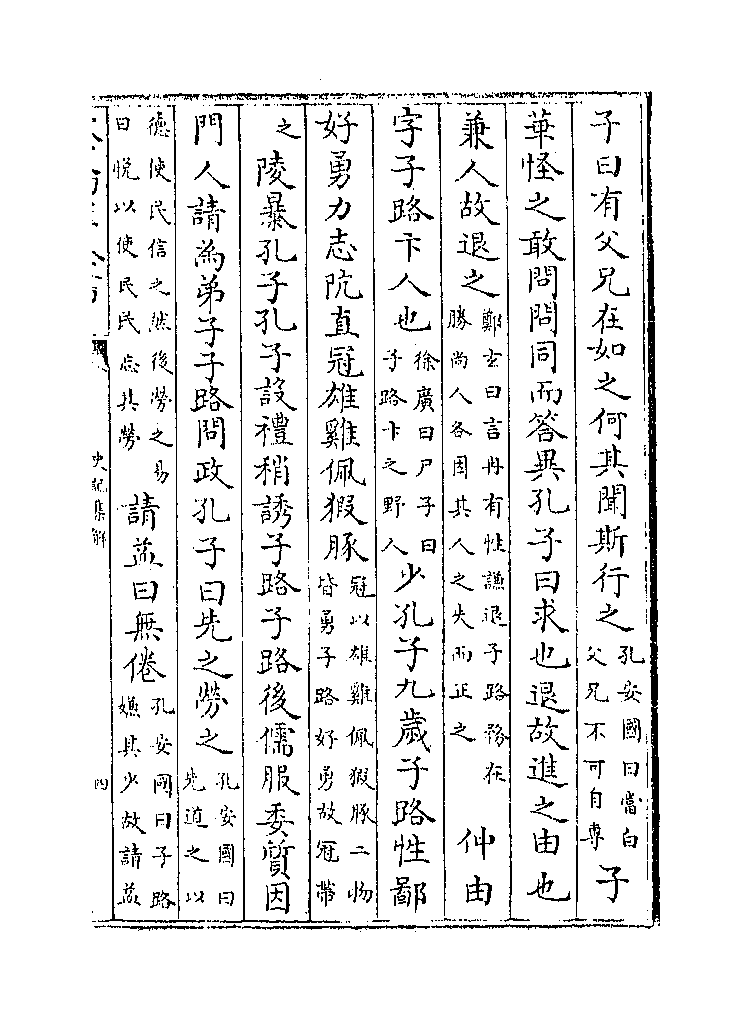 子曰有父兄在如之何其聞斯行之孔安國曰當白父兄不可自專子
華怪之敢問問同而答異孔子曰求也退故進之由也
兼人故退之鄭玄曰言冉有性謙退子路務在勝尚人各因其人之失而正之仲由
字子路卞人也徐廣曰尸子曰子路卞之野人少孔子九歲子路性鄙
好勇力志阬直冠雄雞佩猳豚冠以雄雞佩猳豚二物皆勇子路好勇故冠帶
之陵暴孔子孔子設禮稍誘子路子路後儒服委質因
門人請為弟子子路問政孔子曰先之勞之孔安國曰先道之以
德使民信之然後勞之易曰悅以使民民忘其勞請益曰無倦孔安國曰子路嫌其少故請益
史記集解
四